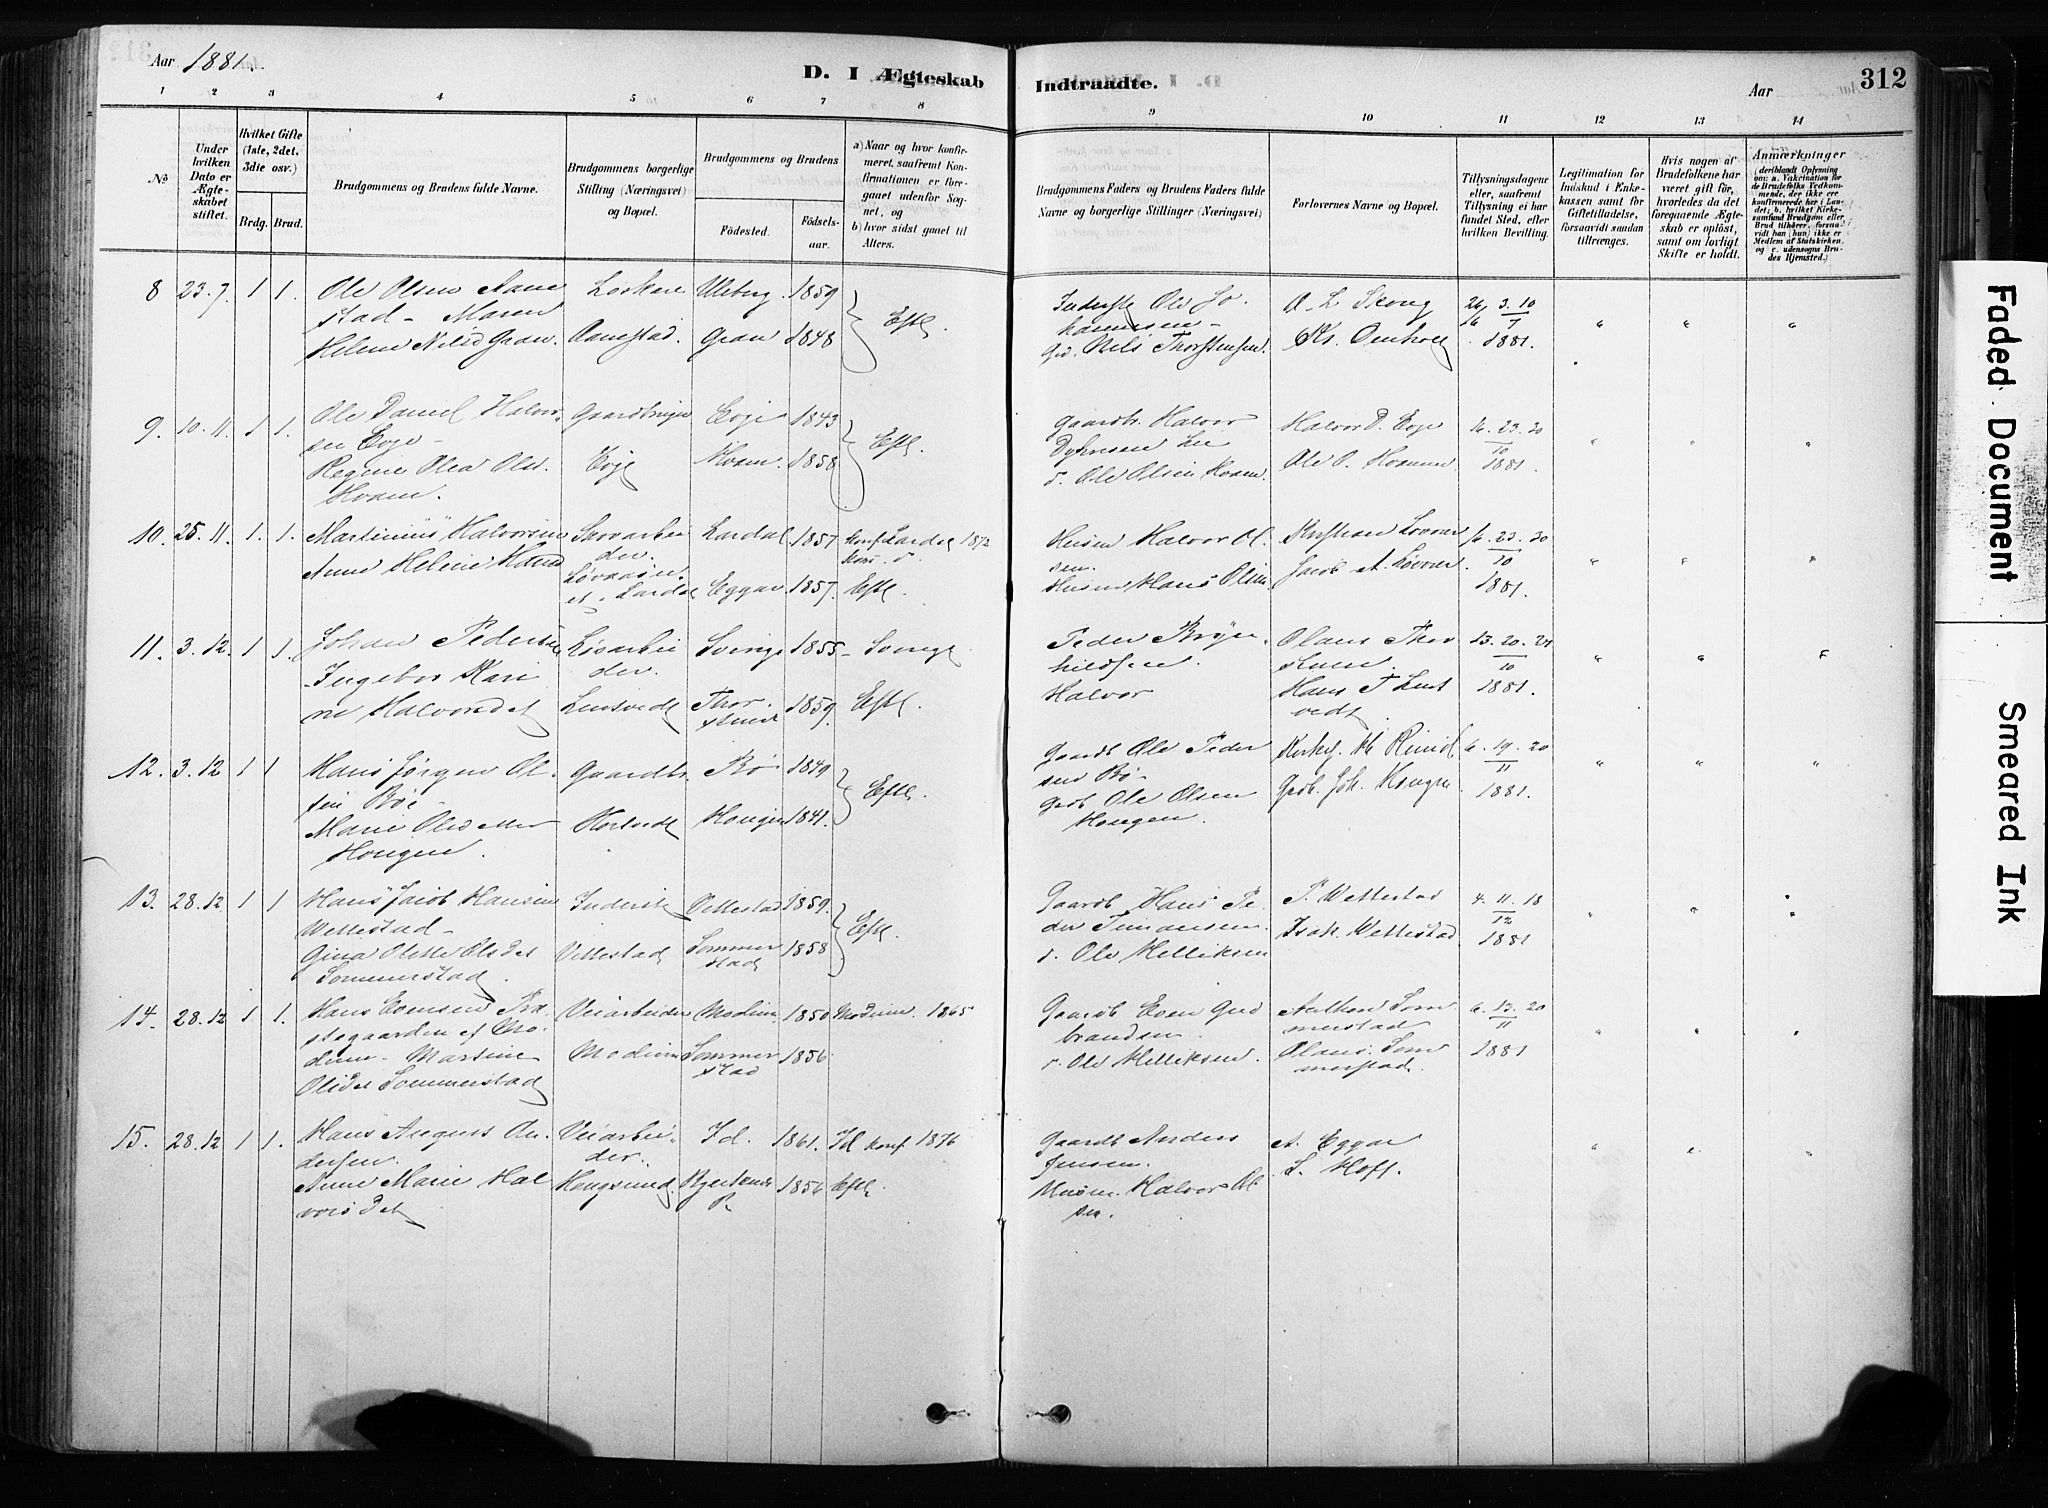 Aar 1881.
D. I Ægteskab
Indtraadte.
Aar
312
1 2 3 4 5 6 7 8 9 10 11 12 13 14
No
Under hvilken Dato er Ægteskabet stiftet.
Hvilket Gifte (1ste, 2det, 3die osv.)
Brdg. Brud.
Brudgommens og Brudens fulde Navne.
Brudgommens borgerlige Stilling (Næringsvei) og Bopæl.
Brudgommens og Brudens
Födested.
Födselsaar.
a) Naar og hvor konfirmeret, saafremt Konfirmationen er foregaaet udenfor Sognet, og
b) hvor sidst gaaet til Alters.
Brudgommens Faders og Brudens Faders fulde Navne og borgerlige Stillinger (Næringsvei)
Forlovernes Navne og Bopæl.
Tillysningsdagene eller, saafremt Tillysning ei har fundet Sted, efter hvilken Bevilling.
Legitimation for Indskud i Enkekassen samt for Giftetilladelse, forsaavidt saadan tiltrænges.
Hvis nogen af Brudefolkene har været gift før, hvorledes da det foregaaende Ægteskab er oplöst, samt om lovligt Skifte er holdt.
Anmærkninger
(deriblandt Oplysning om: a. Vakcination for de Brudefolks Vedkommende, der ikke ere konfirmerede her i Landet; b. hvilket Kirkesamfund Brudgom eller Brud tilhører, forsaavidt han (hun) ikke er Medlem af Statskirken, og c. udensogns Brudes Hjemsted.)
8 23.7 1 1. Ole Olsen Aane
stad - Maren
Helene Nilsd Gran.
Aanestad.
Ulebrg 1859
Gran 1848
Eftl.
Inderste Ole Jo
hannesen -
Grd. Nels Thorstensen.
O. L. Skoug
26/6 3. 10/7
1881.
9. 10.11. 1 1. Ole Daniel Halvor
sen Evje -
Regine Olea Olsd.
Hvam.
Gaardbruger
Evje
Evje 1843
Hvam. 1858
Eftl.
Gaardb. Halvor
Lie
Ole Olsen Hvam.
Halvor D. Evje
Ole O. Hvamm
16. 23. 30/10
1881.
10. 25.11. 1. 1. Martinius Halvorsen
Anne Helene Hansd
Skovarbei
der.
Lardal
Lardal 1857
Eggar 1857.
Konf. Lardal 1872
Eftl.
Husm Halvor Ol
sen.
Husm Hans Olsen
Kristian Løvaas
Jacob A. Løvaas.
16. 23. 30/10
1881.
11. 3.12. 1 1. Johan Pedersen
Ingebor Kari
ne Halvorsdet
Løsarbei
der.
Lintvedt
Sverige 1855
Thor
stuen 1859.
Sverige
Eftl.
Peder
Halvor
Olaus Thor
stuen.
Hans T. Lint
vedt
13. 20. 27/10
1881.
12. 3.12 1 1 Hans Jørgen Ol
sen Bøe -
Marie Olsdatter
Hougen.
Gaardb.
Bø 1849
Hougen 1841.
Eftl.
Gaardb Ole Peder
sen Bø -
Grdb Ole Olsen
Hougen.
Grdb. Joh. Hougen
6. 19. 20/11
1881.
13. 28.12 1 1 Hans Jacob Hansen
Wettestad -
Gina Olette Olsdet
Sommerstad
Inderste
Vettestad
Vettestad 1859.
Sommer
stad 1858
Eftl.
Gaardb Hans Pe
der Simensen.
Ole Helliksen
P. Wettestad
Isak Wettestad
4. 11. 18/12
1881
14. 28.12 1 1. Hans Evensen Præ
stegaarden af Mo
dum - Martine
Olsdet Sommerstad
Veiarbeider
Modum
Modum 1850
Sommer
stad 1856
Modum 1865
Gaardb Even Gud
brandsen.
Ole Helliksen.
Anthon Som
merstad
Olaus Som
merstad.
6. 13. 20/11
1881
15. 28.12 1 1. Hans August An
dersen.
Anne Marie Hal
vorsdet
Veiarbei
der.
Hougsund.
Id. 1861.
1856
Id konf 1876
Eftl.
Gaardb Anders
Jensen.
Husm. Halvor Ol
sen.
A. Eggar
L. Hoff.
Faded Document
Smeared Ink